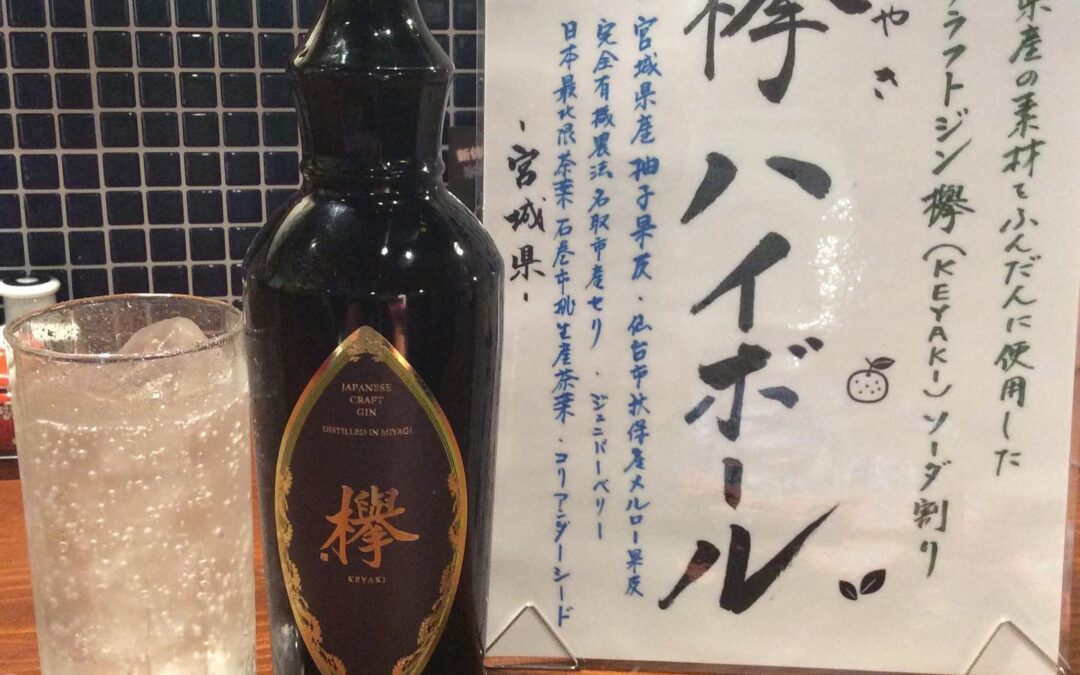 県産の素材をふんだんに使用した
クラフトジン欅(KEYAKI)ソーダ割り
やき
欅ハイボール
宮城県産柚子果皮・仙台市秋保産メルロー果皮
完全有機農法名取市産セリ・ジュニパーベリー
日本最北限茶葉石巻市桃生産茶葉・コリアンダーシード
-宮城県-
JAPANESE
CRAFT
GIN
DISTILLED IN MIYAGI
欅
KEYAKI